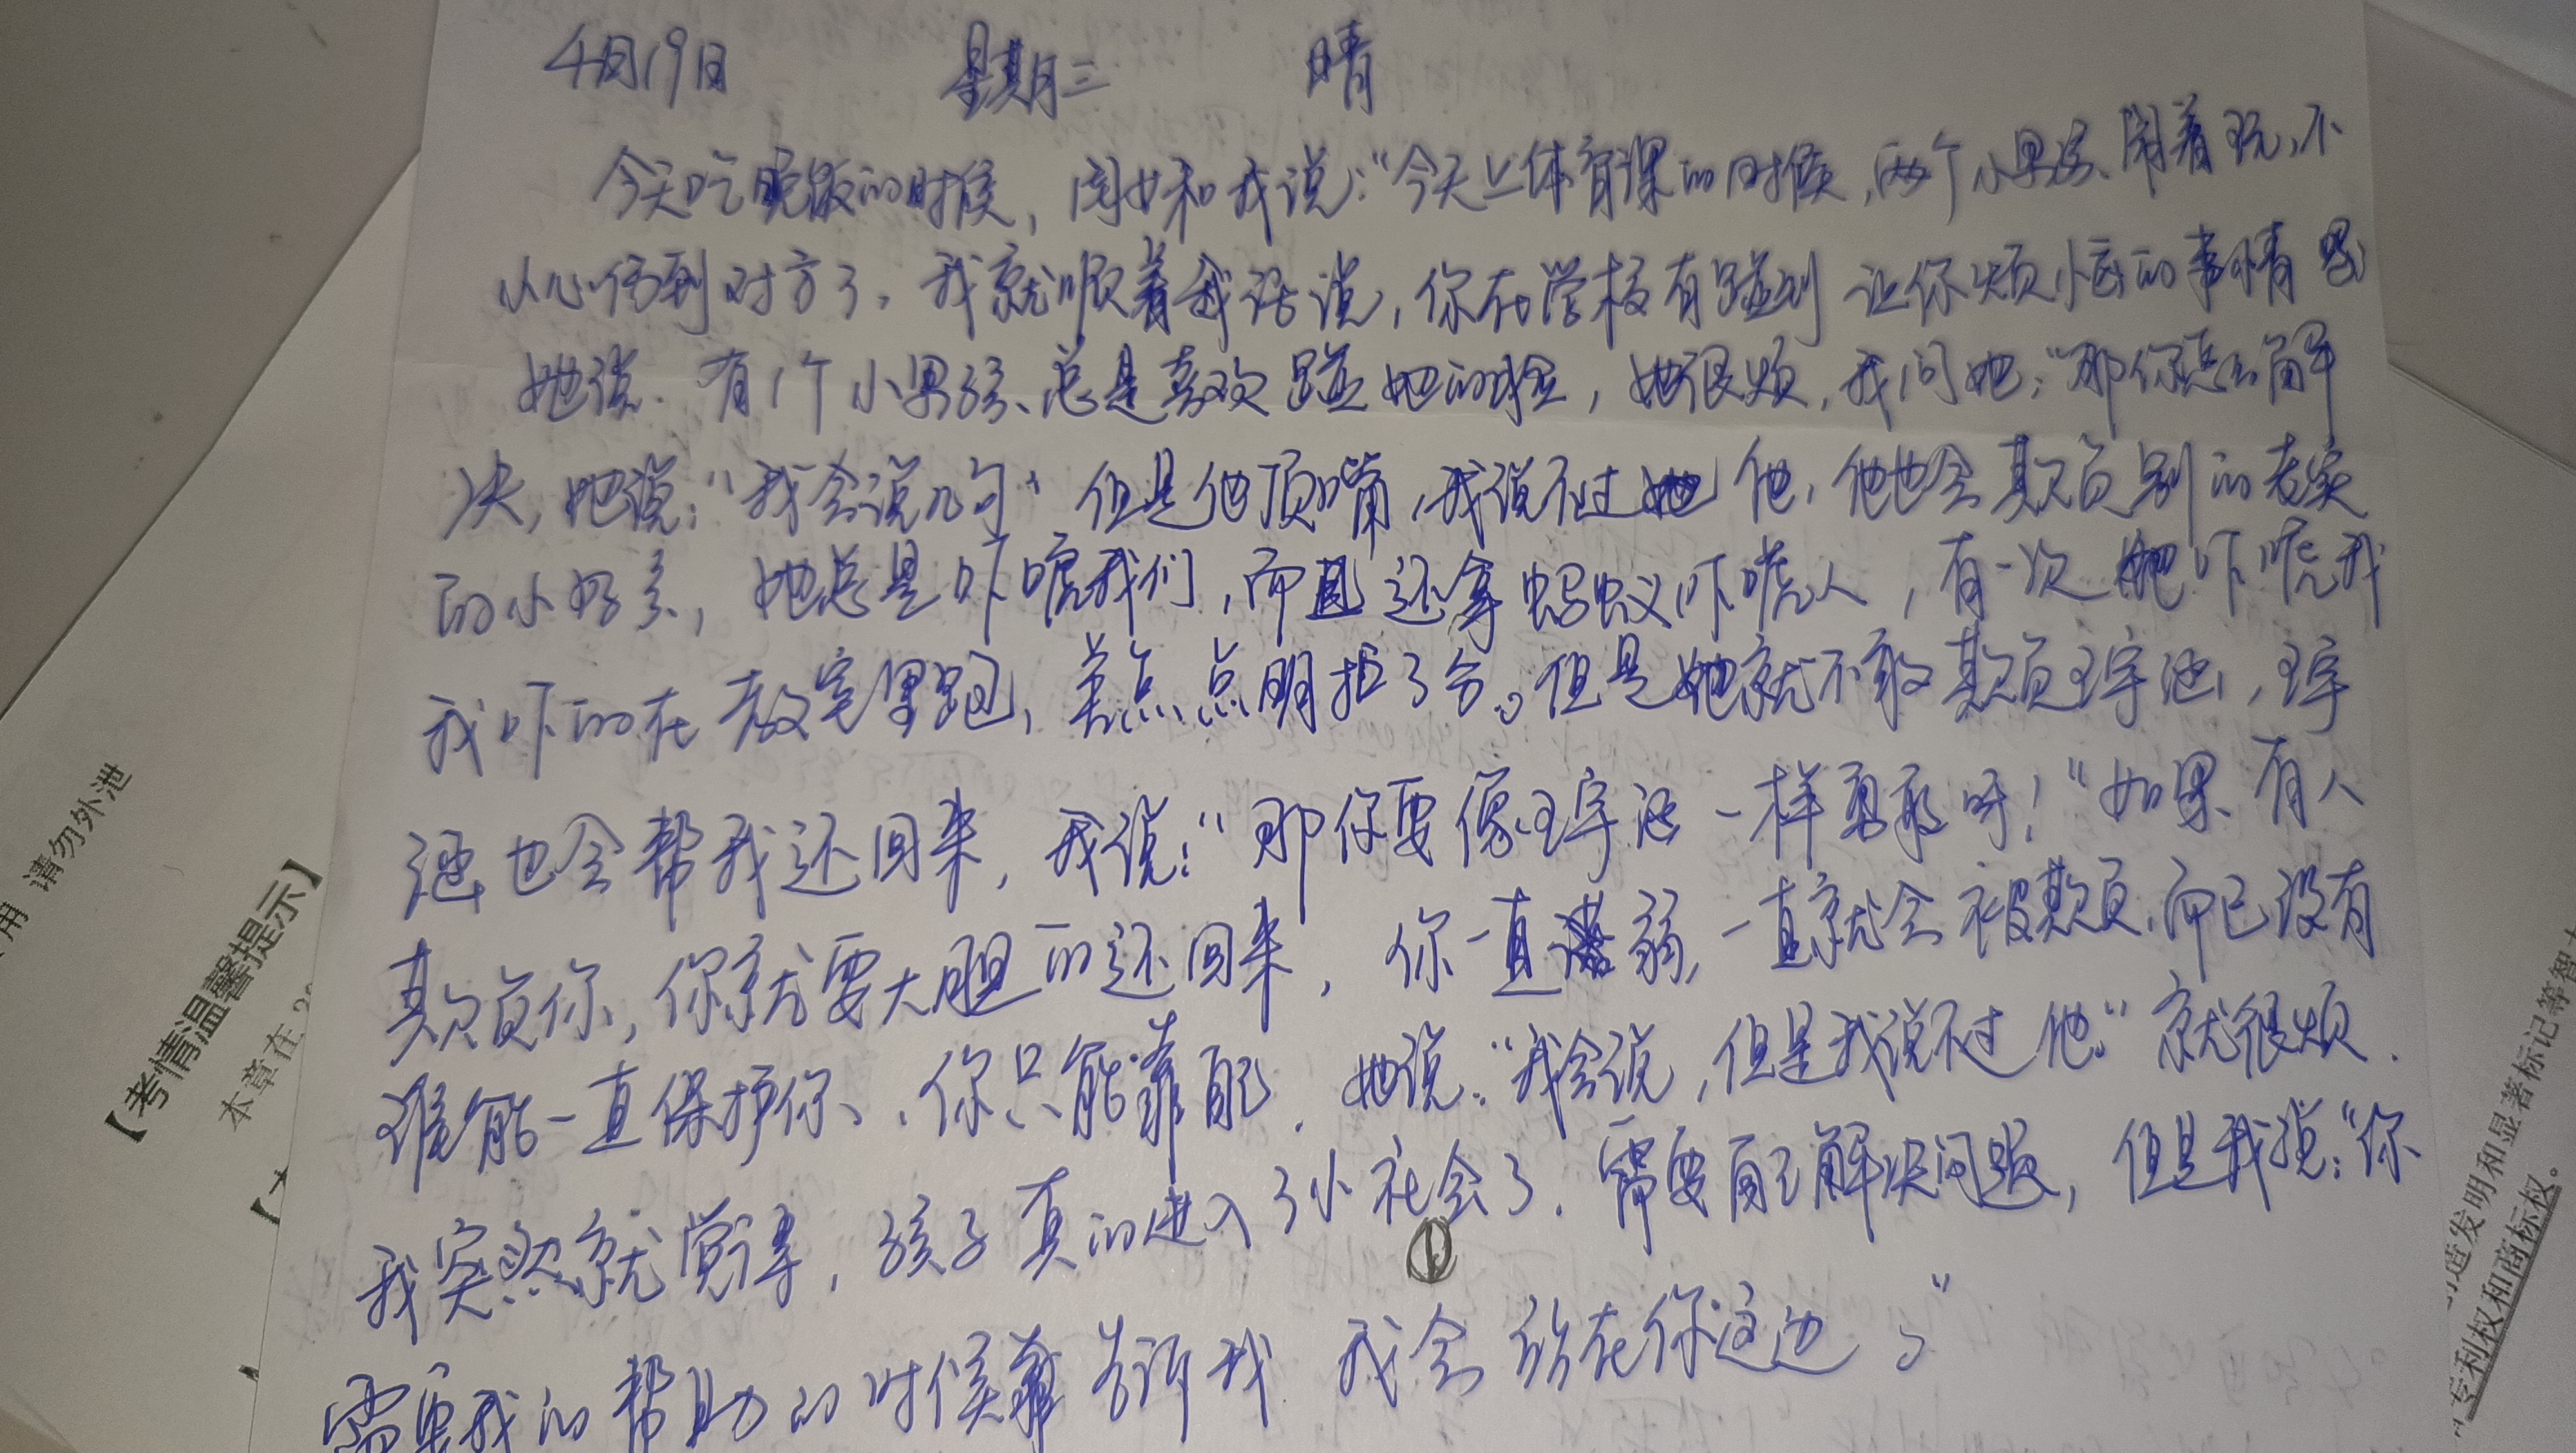 4月19日 星期三 晴
今天吃晚饭的时候，闺女和我说：“今天上体育课的时候，两个小男孩、闹着玩，不
小心伤到对方了。我就顺着我话说，你在学校有碰到让你烦恼的事情吗
她说．有1个小男孩、总是喜欢踫她的，她很烦，我问她：“那你怎么解
决，她说：“我会说几句” 但是他顶嘴，我说不过他，他也会欺负别的老实
的小好多，她总是吓唬我们，而且还拿蚂蚁吓唬人，有一次她吓唬我
我吓的在教室里跑，差点点明扣了分。但是她就不敢欺负王宇涵，王宇
涵也会帮我还回来，我说：“那你要像王宇涵一样勇敢呀！“如果有人
欺负你，你就要大胆的还回来，你一直弱，一直就会被欺负，而已没有
谁能一直保护你、，你只能靠自己．她说：“我会说，但是我说不过他。”就很烦．
我突然就觉得，孩子真的进入了小社会了．需要自己解决问题，但是我说：“你
①
需要我的帮助的时候告诉我 我会站在你这边。”
用 请勿外泄
【考情温馨提示】
本章在
造发明和显著标记等智
专利权和商标权。